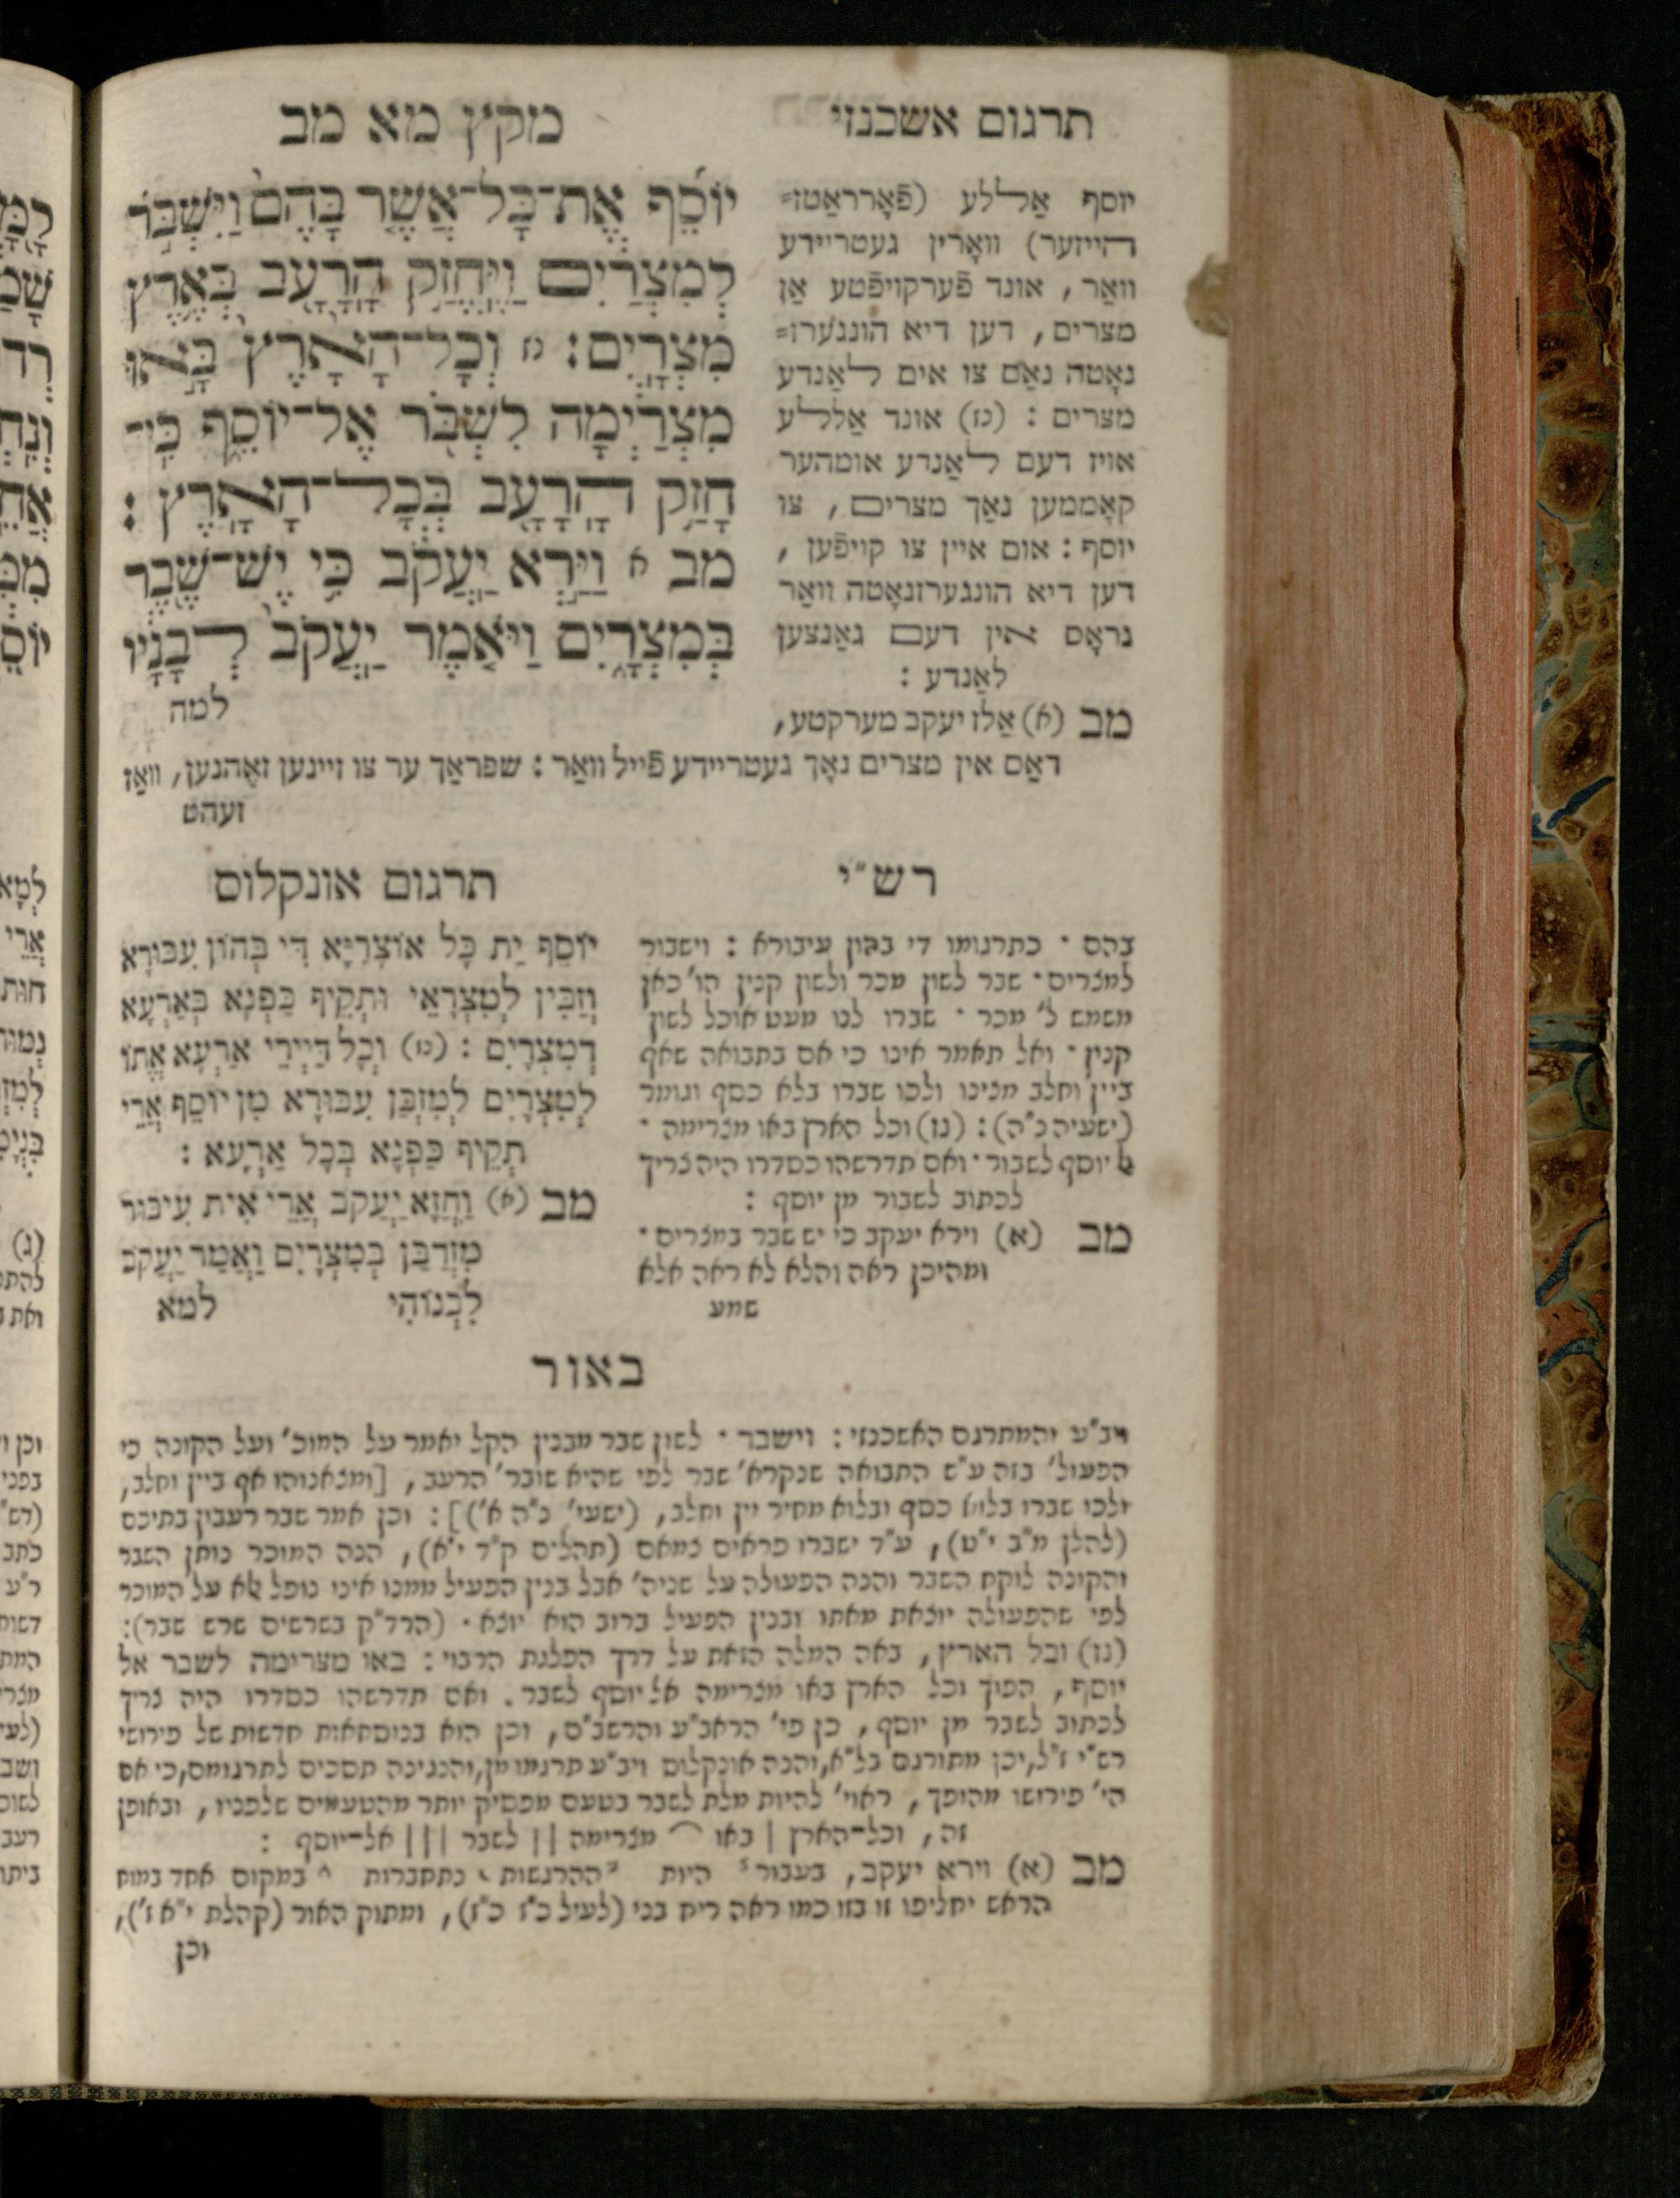 מקץ מא מב
יוֹסֵ֜ף אֶֽת־כָּל־אֲשֶׁ֤ר בָּהֶם֙ וַיִּשְׁבֹּ֣ר
לְמִצְרַ֔יִם וַיֶּחֱזַ֥ק הָרָעָ֖ב בְּאֶ֥רֶץ
מִצְרָֽיִם׃ נז וְכָל־הָאָ֙רֶץ֙ בָּ֣אוּ
מִצְרַ֔יְמָה לִשְׁבֹּ֖ר אֶל־יוֹסֵ֑ף כִּֽי־
חָזַ֥ק הָרָעָ֖ב בְּכָל־הָאָֽרֶץ׃
מב א וַיַּ֣רְא יַעֲקֹ֔ב כִּ֥י יֶשׁ־שֶׁ֖בֶר
בְּמִצְרָ֑יִם וַיֹּ֤אמֶר יַעֲקֹב֙ לְבָנָ֔יו
למה
תרגום אשכנזי
יוסף אַללע (פֿאָרראַטז=
הייזער) וואָרין געטריידע
וואַר, אונד פֿערקויפֿטע אַן
מצרים, דען דיא הונגערז=
נאָטה נאַם צו אים לאַנדע
מצרים : (נז) אונד אַללע
אויז דעם לאַנדע אומהער
קאָממען נאַך מצרים, צו
יוסף : אום איין צו קויפֿען,
דען דיא הונגערזנאָטה וואַר
גראָס אין דעם גאַנצען
לאַנדע :
מב (א) אַלז יעקב מערקטע,
דאַס אין מצרים נאָך געטריידע פֿייל וואַר : שפראַך ער צו זיינען זאֶהנען, וואַז
זעהט
רש״י
בהם · כתרגומו די בהון עיבורא : וישבור
למצרים · שבר לשון מכר ולשון קנין הו׳ כאן
משמש ל׳ מכר · שברו לנו מעט אוכל לשון
קנין · ואל תאמר אינו כי אם בתבואה שאף
ביין וחלב מצינו ולכו שברו בלא כסף וגומר
(ישעיה נ״ה) : (נז) וכל הארץ באו מצרימה ·
אל יוסף לשבור · ואם תדרשהו כסדרו היה צריך
לכתוב לשבור מן יוסף :
מב (א) וירא יעקב כי יש שבר במצרים ·
ומהיכן ראה והלא לא ראה אלא
שמע
תרגום אונקלוס
יוֹסֵף יַת כָּל אוֹצְרַיָּא דִּי בְהוֹן עִבּוּרָא
וְזַבִּין לְמִצְרָאֵי וּתְקֵיף כַּפְנָא בְּאַרְעָא
דְמִצְרָיִם : (נז) וְכָל דַּיְירֵי אַרְעָא אֲתוֹ
לְמִצְרַיִם לְמִזְבַּן עִבּוּרָא מִן יוֹסֵף אֲרֵי
תְקֵיף כַּפְנָא בְּכָל אַרְעָא :
מב (א) וַחֲזָא יַעֲקֹב אֲרֵי אִית עִיבּוּר
מִזְדַּבַּן בְּמִצְרָיִם וַאֲמַר יַעֲקֹב
לִבְנוֹהִי למא
באור
ויב״ע והמתרגם האשכנזי : וישבר · לשון שבר מבנין הקל יאמר על המוכ׳ ועל הקונה כי
הפעול׳ בזה ע״ש התבואה שנקרא׳ שבר לפי שהיא שובר׳ הרעב, [ומצאנוהו אף ביין וחלב,
ולכו שברו בלוא כסף ובלוא מחיר יין וחלב, (ישעי׳ נ״ה א׳)] : וכן אמר שבר רעבון בתיכם
(להלן מ״ב י״ט), ע״ד ישברו פראים צמאם (תהלים ק״ד י״א), הנה המוכר נותן השבר
והקונה לוקח השבר והנה הפעולה על שניה׳ אבל בנין הפעיל ממנו אינו נופל אלא על המוכר
לפי שהפעולה יוצאת מאתו ובנין הפעיל ברוב הוא יוצא · (הרד״ק בשרשים שרש שבר) :
(נז) וכל הארץ, באה המלה הזאת על דרך הפלגת הרבוי : באו מצרימה לשבר אל
יוסף, הפוך וכל הארץ באו מצרימה אל יוסף לשבר. ואם תדרשהו כסדרו היה צריך
לכתוב לשבר מן יוסף, כן פי׳ הראב״ע והרשב״ם, וכן הוא בנוסחאות חדשות של פירושי
רש״י ז״ל, וכן מתורגם בל״א, והנה אונקלוס ויב״ע תרגמו מן, והנגינה תסכים לתרגומם, כי אם
הי׳ פירושו מהופך, ראוי׳ להיות מלת לשבר בטעם מפסיק יותר מהטעמים שלפניו, ובאופן
זה, וכל־הארץ | באו ⁀ מצרימה || לשבר ||| אל־יוסף :
מב (א) וירא יעקב, בעבור היות ההרגשות נתחברות במקום אחד במוח
הראש יחליפו זו בזו כמו ראה ריח בני (לעיל כ״ז כ״ז), ומתוק האור (קהלת י״א ז׳),
וכן